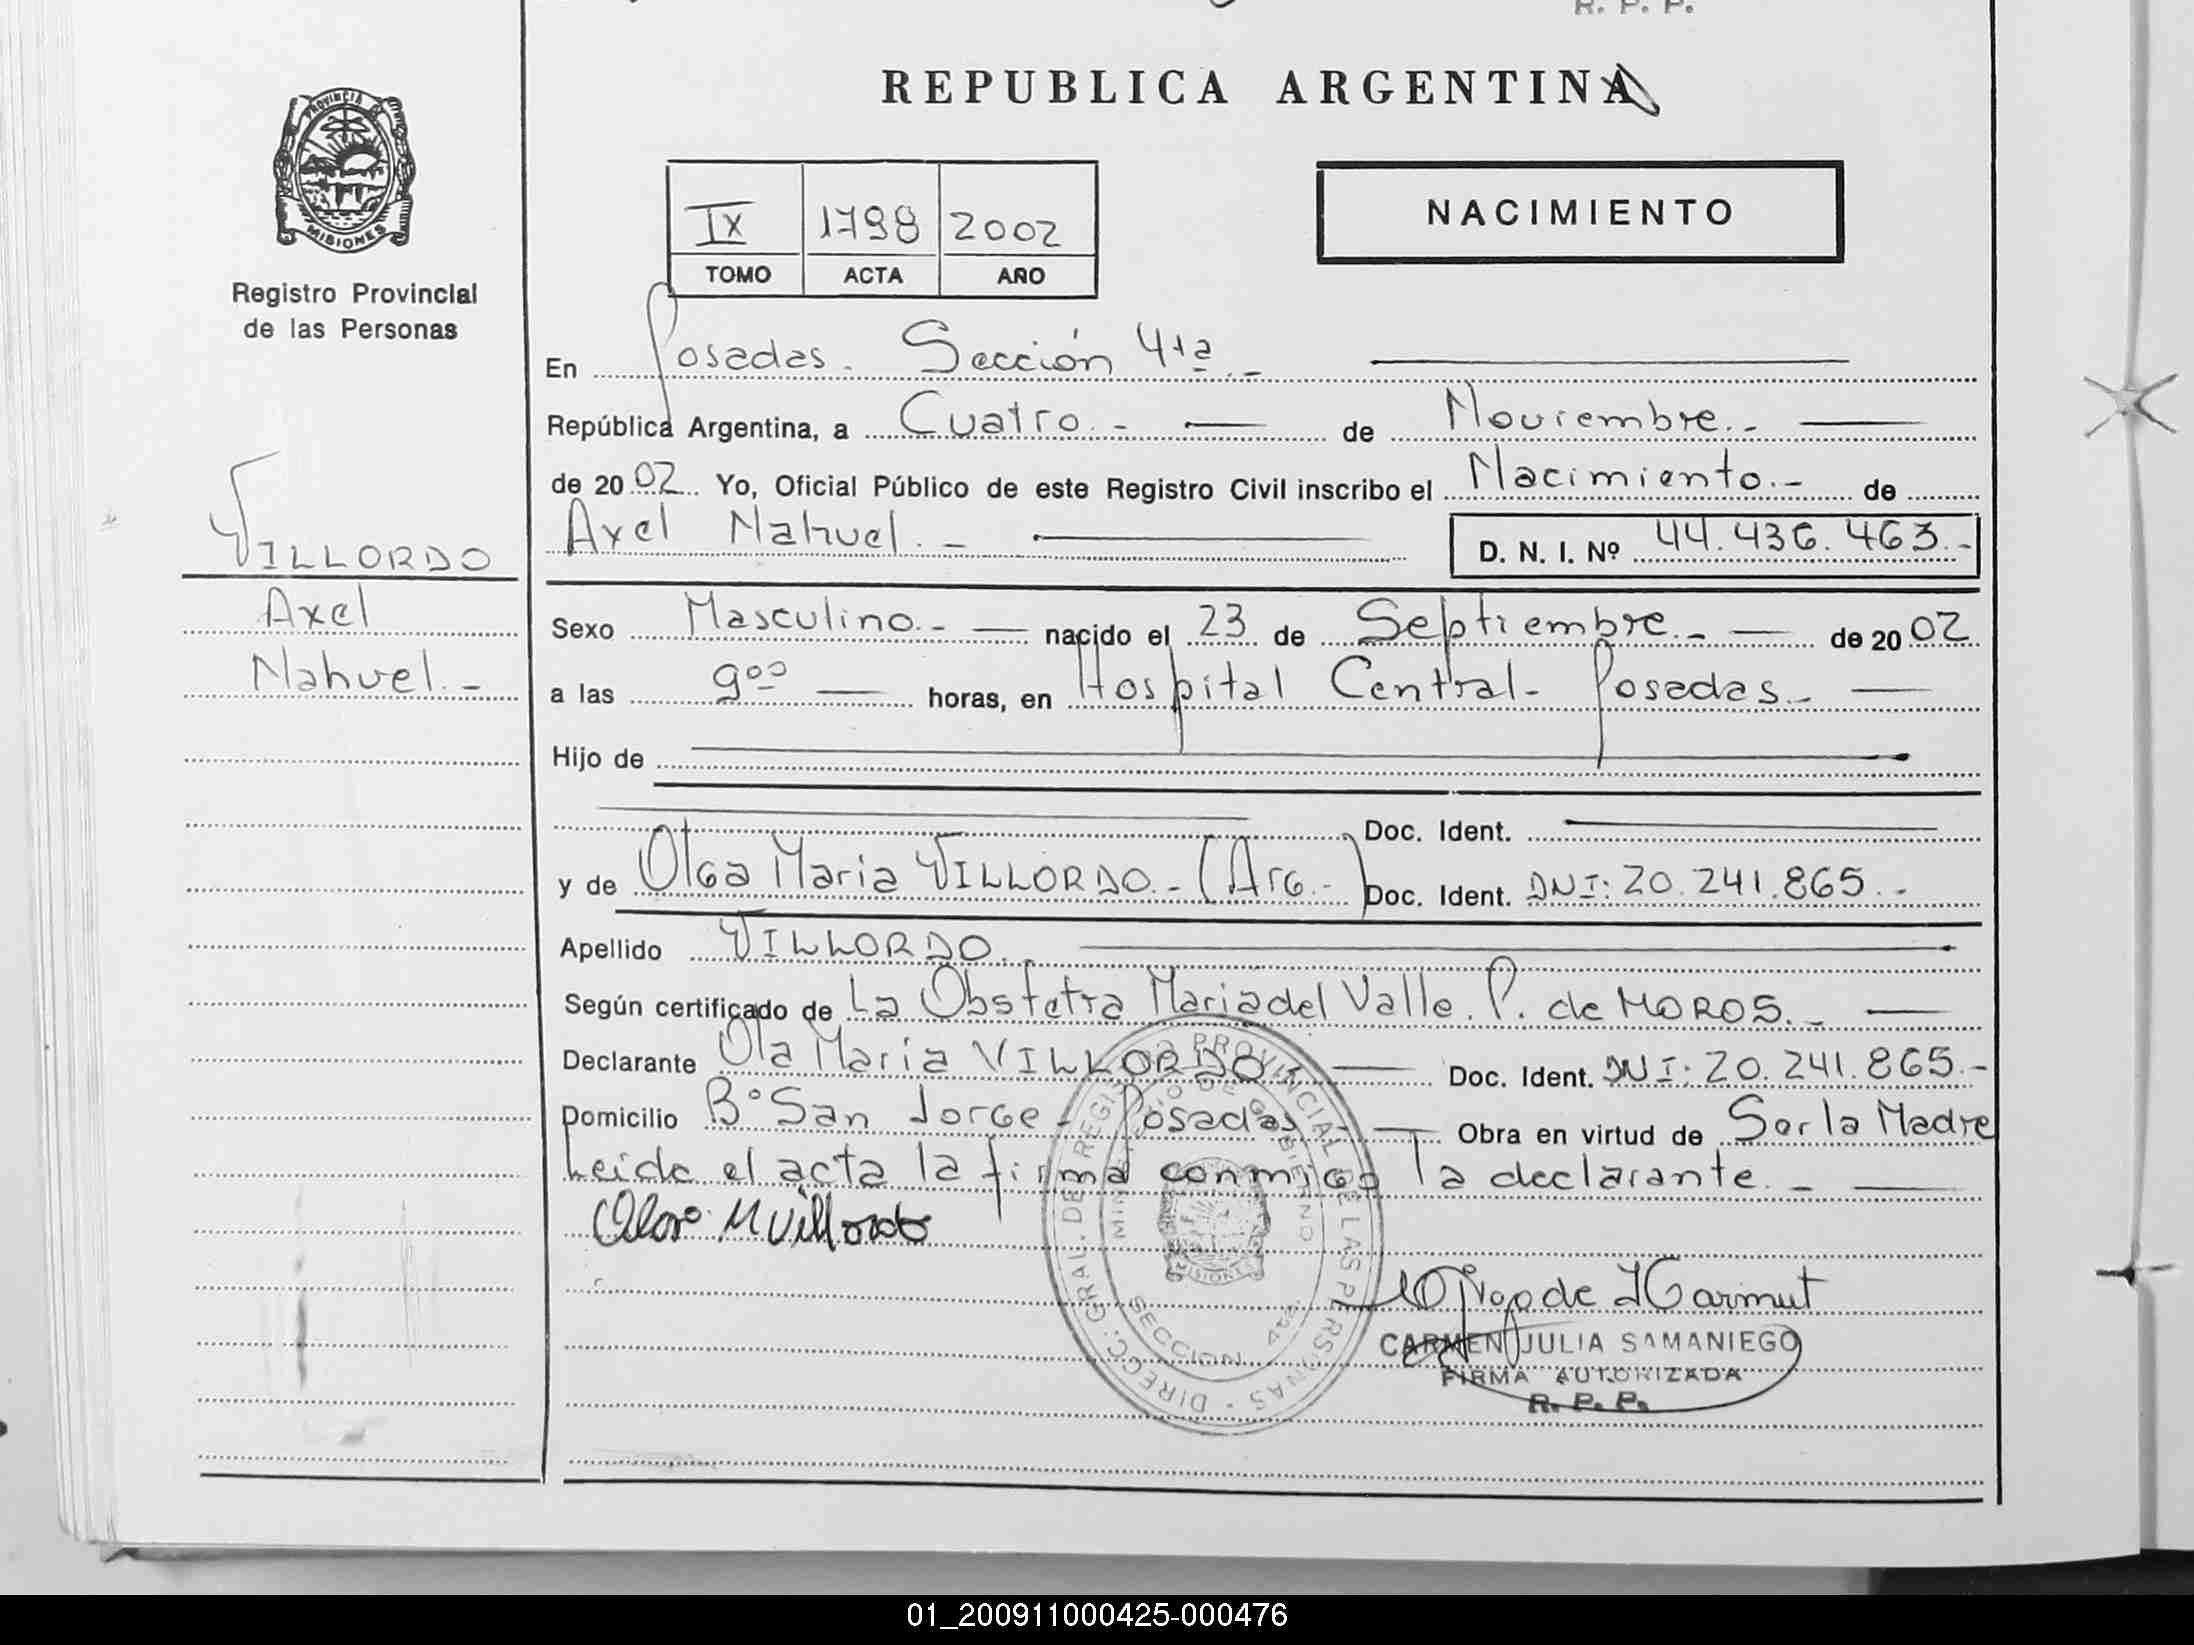 R. P. P.
REPUBLICA ARGENTINA
PROVINCIA DE MISIONES
Registro Provincial
de las Personas
IX 1798 2002
TOMO ACTA AÑO
NACIMIENTO
En Posadas. Sección 4ta.-
República Argentina, a Cuatro.- de Noviembre.-
de 2002 Yo, Oficial Público de este Registro Civil inscribo el Nacimiento.- de
Axel Nahuel.- D. N. I. Nº 44.436.463.-
VILLORDO
Axel
Nahuel.-
Sexo Masculino.- nacido el 23 de Septiembre.- de 2002
a las 9ºº horas, en Hospital Central- Posadas.-
Hijo de
Doc. Ident.
y de Olga Maria VILLORDO.- (Arg.-) Doc. Ident. DNI: 20.241.865.-
Apellido VILLORDO.
Según certificado de La Obstetra Maria del Valle. P. de MOROS.-
Declarante Ola Maria VILLORDO.- Doc. Ident. DNI: 20.241.865.-
Domicilio Bº San Jorge- Posadas.- Obra en virtud de Ser la Madre
Leida el acta la firma conmigo la declarante.-
M Villordo
DIRECC. GRAL. DE REGISTRO PROVINCIAL DE LAS PERSONAS
MINISTERIO DE GOBIERNO
MISIONES
SECCION 4ta.
CARMEN JULIA SAMANIEGO
FIRMA AUTORIZADA
R. P. P.
01_200911000425-000476